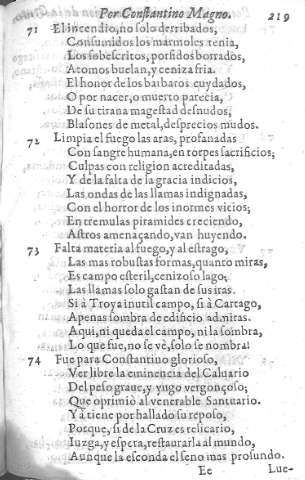 Por Constantino Magno. 219
71 El incendio, no solo derribados,
Consumidos los marmoles tenia,
Los sobescritos, porfidos borrados,
Atomos buelan, y ceniza fria.
El honor de los barbaros cuydados,
O por nacer, o muerto parecia,
De su tirana magestad desnudos,
Blasones de metal, desprecios mudos.
72 Limpia el fuego las aras, profanadas
Con sangre humana, en torpes sacrificios;
Culpas con religion acreditadas,
Y de la falta de la gracia indicios,
Las ondas de las llamas indignadas,
Con el horror de los inormes vicios;
En tremulas piramides creciendo,
Astros amenaçando, van huyendo.
73 Falta materia al fuego, y al estrago,
Las mas robustas formas, quanto miras,
Es campo esteril, cenizoso lago;
Las llamas solo gastan de sus iras.
Si à Troya inutil campo, si à Cartago,
Apenas sombra de edificio admiras.
Aqui, ni queda el campo, ni la sombra,
Lo que fue, no se vè, solo se nombra!
74 Fue para Constantino glorioso,
Ver libre la eminencia del Caluario
Del peso graue, y yugo vergonçoso;
Que oprimiò al venerable Santuario.
Yà tiene por hallado su reposo,
Porque, si de la Cruz es relicario,
Iuzga, y espera, restaurarla al mundo,
Aunque la esconda el seno mas profundo.
Ee Lue-